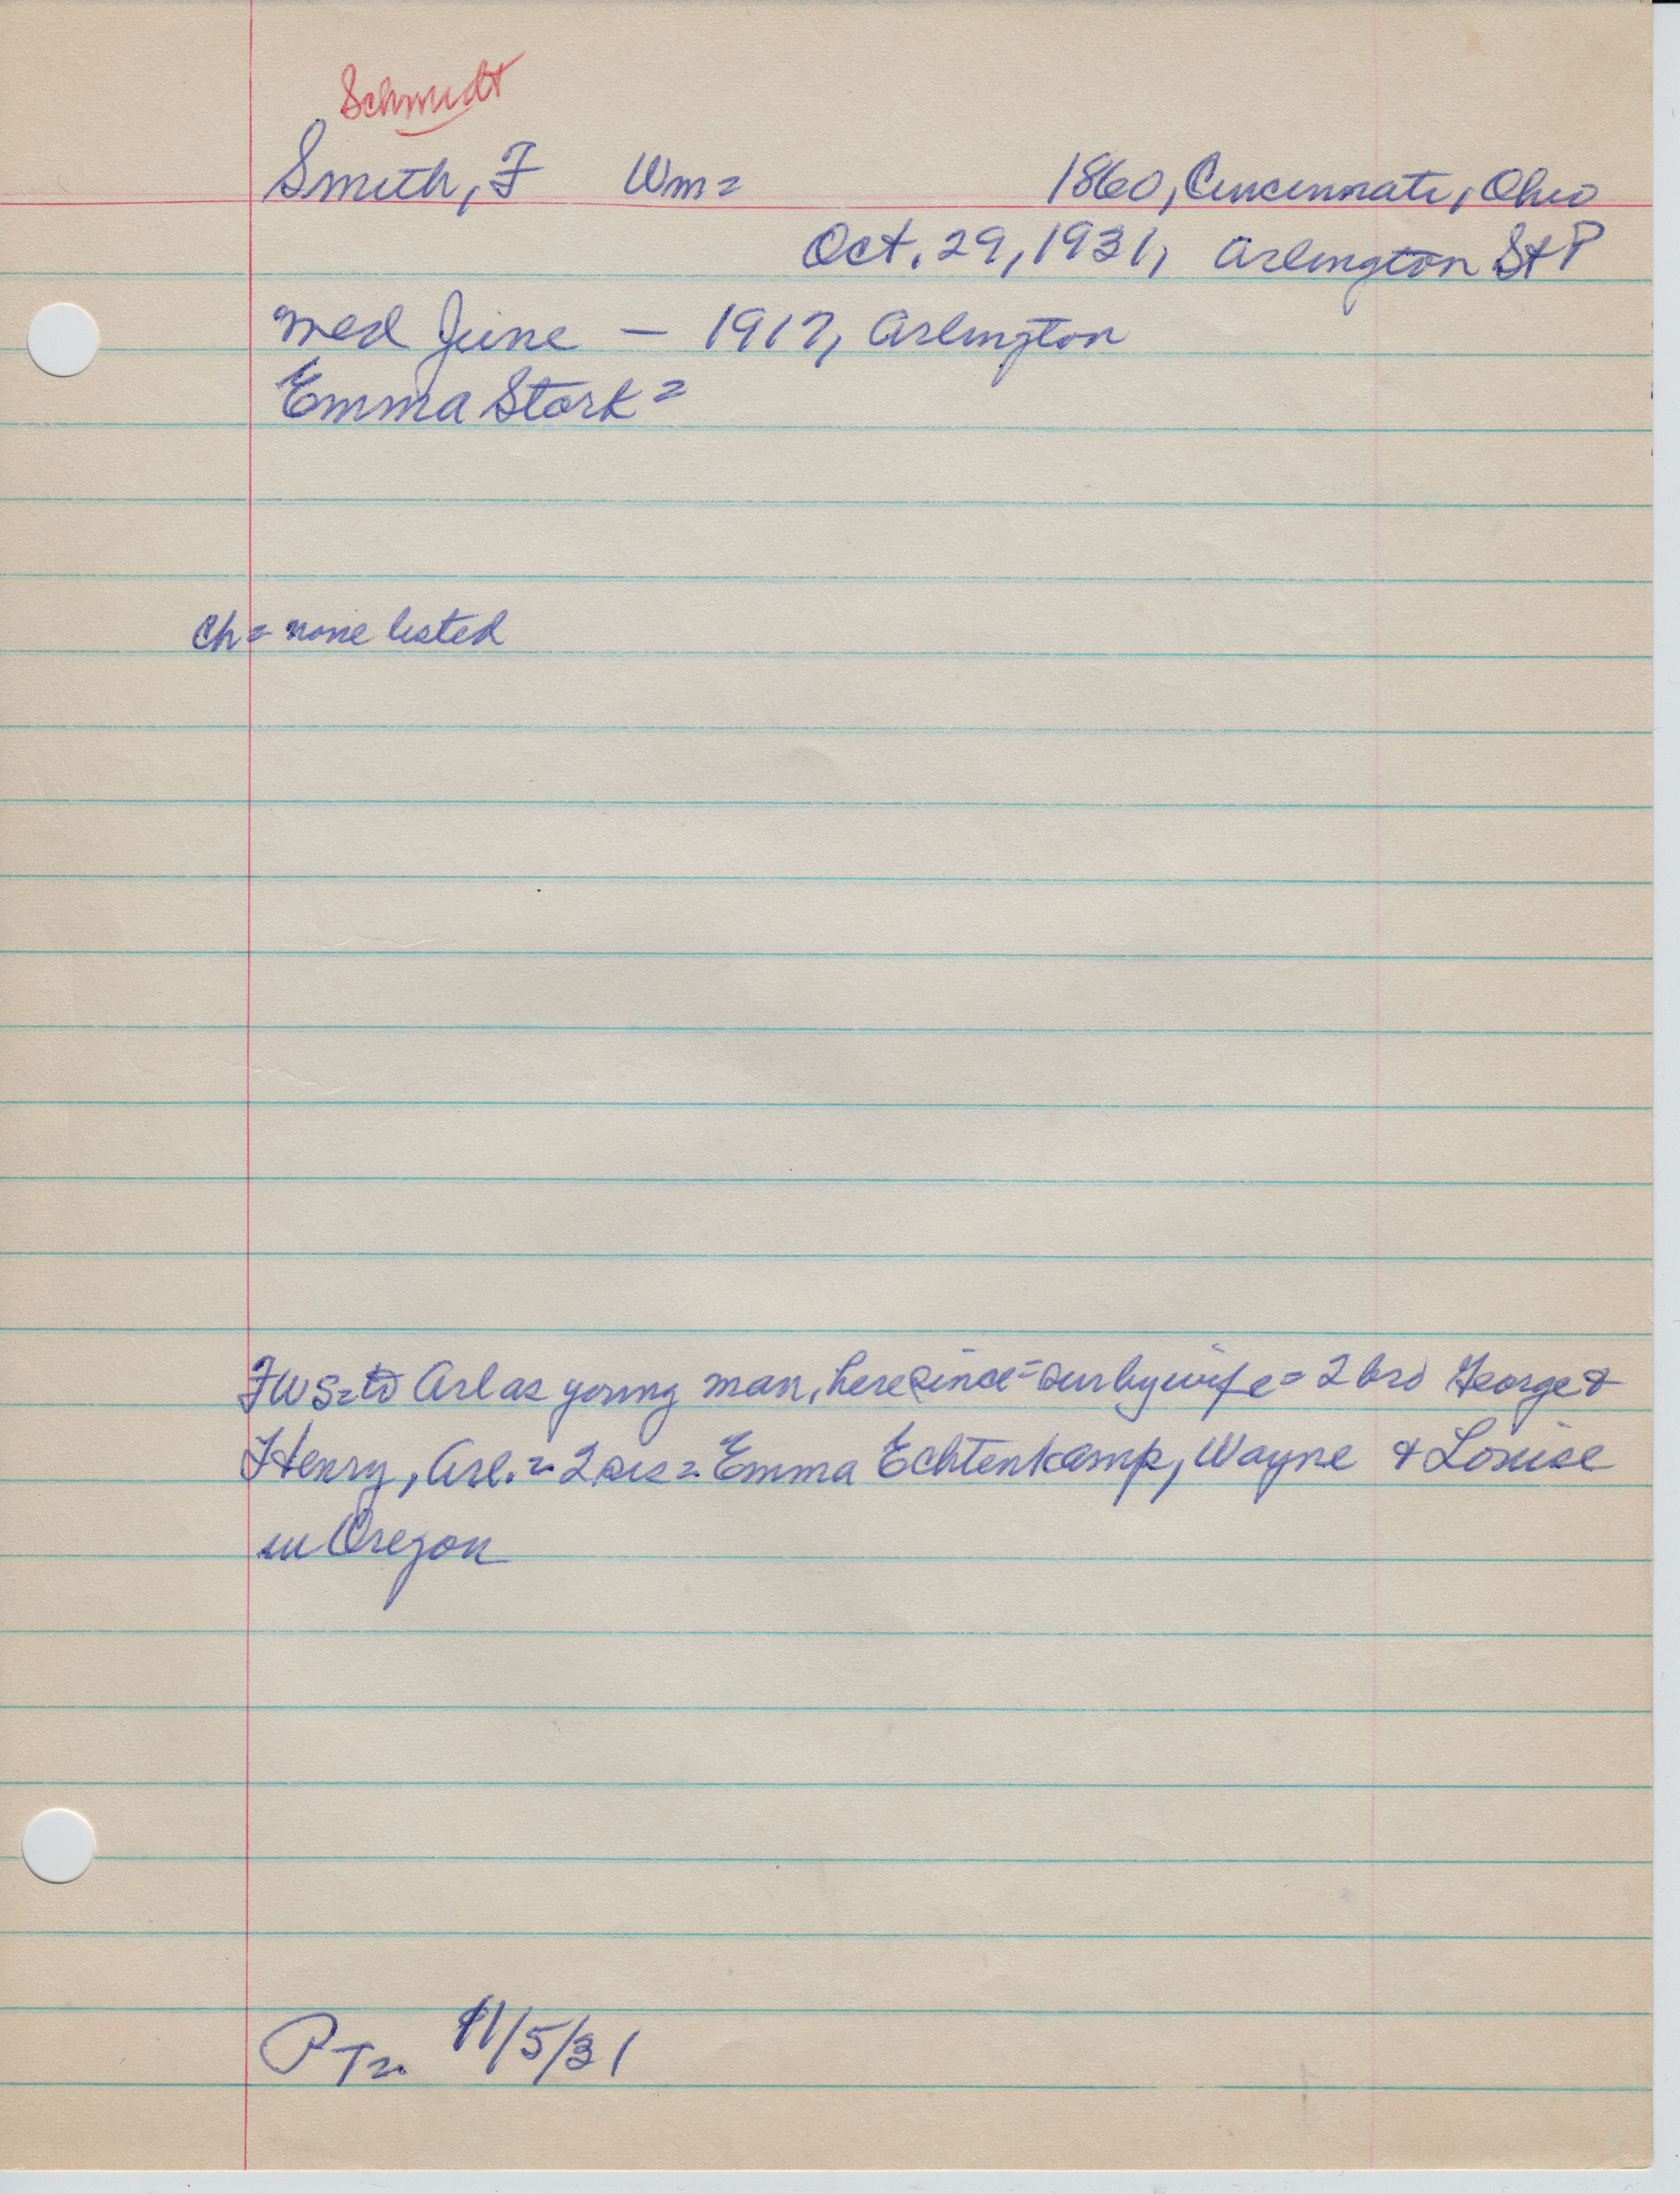 Schmidt
Smith, F Wm =
1860, Cincinnati, Ohio
Oct. 29, 1931, Arlington St P
med June — 1917, Arlington
Emma Stork =
Ch = none listed
FWS = to Arl as young man, here since = sur by wife = 2 bro George &
Henry, Arl. = 2 sis = Emma Echtenkamp, Wayne & Louise
in Oregon
PT = 11/5/31